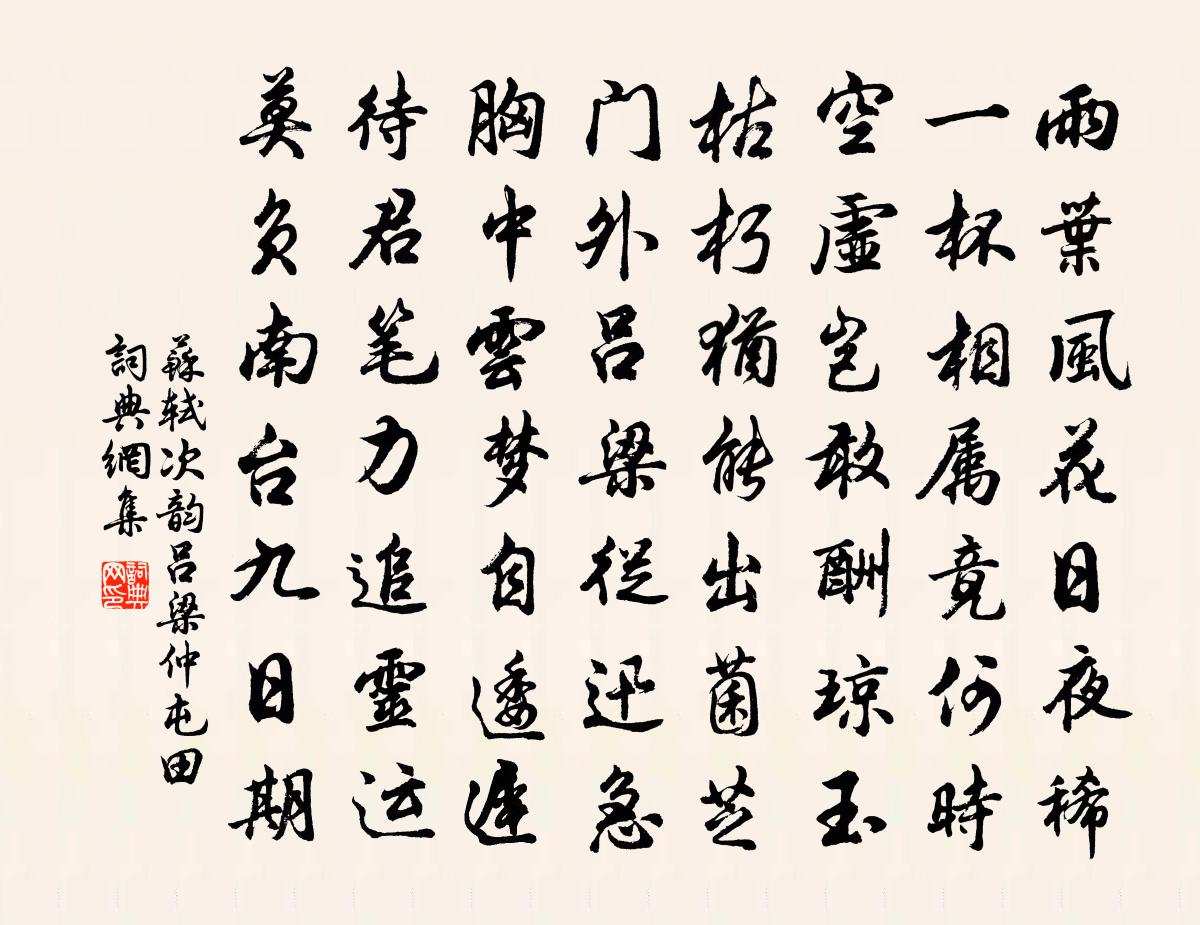 雨葉風花日夜稀
一杯相属竟何時
空虛岂敢酬琼玉
枯朽猶能出菌芝
门外吕梁從迅急
胸中雲梦自逶遲
待君笔力追靈运
莫负南台九日期
蘇轼次韵吕梁仲屯田
詞典網集
詞典网印